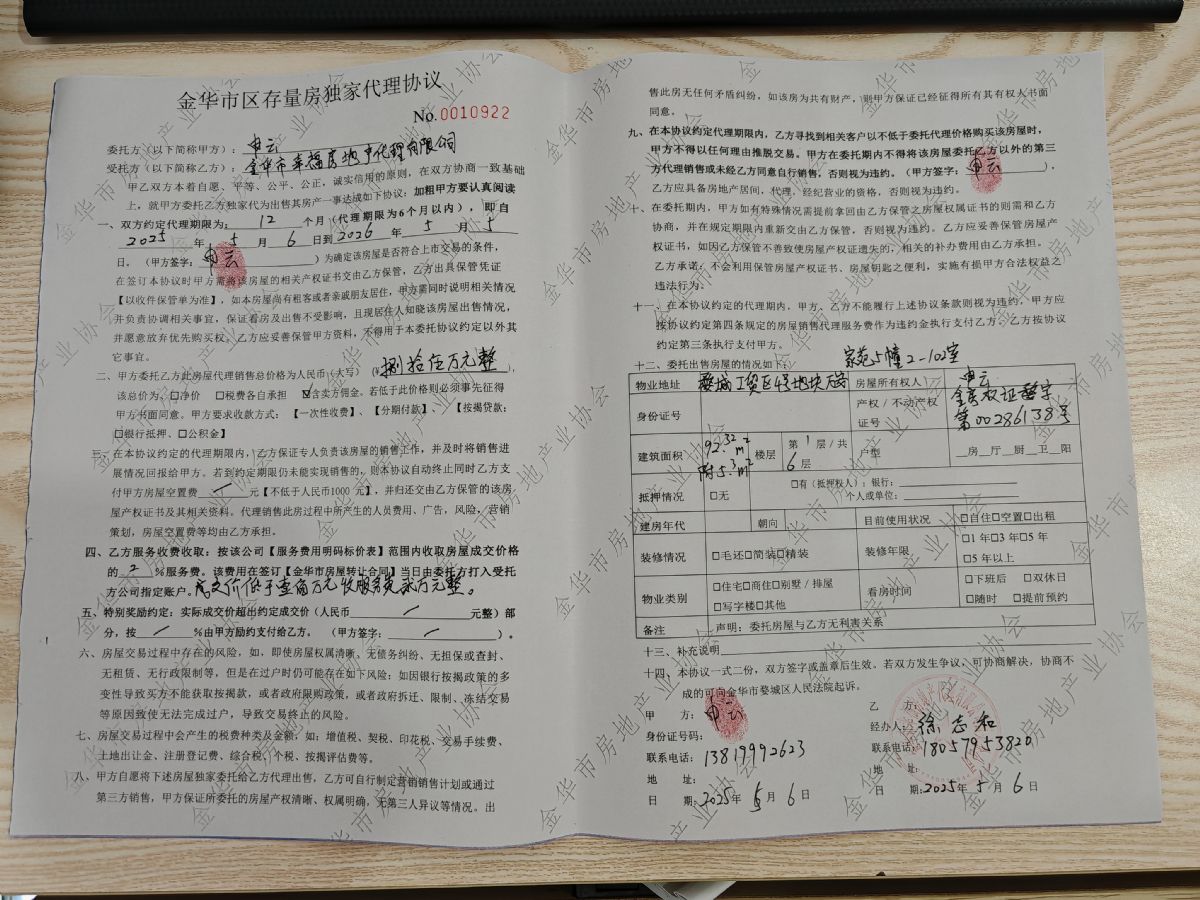 金华市区存量房独家代理协议
No.0010922
委托方（以下简称甲方）：申云
受托方（以下简称乙方）：金华市幸福房地产代理有限公司
甲乙双方本着自愿、平等、公平、公正，诚实信用的原则，在双方协商一致基础
上，就甲方委托乙方独家代为出售其房产一事达成如下协议：加粗甲方要认真阅读
一、双方约定代理期限为：12个月（代理期限为6个月以内），即自
2025年5月6日到2026年5月5
日。（甲方签字：申云）为确定该房屋是否符合上市交易的条件，
在签订本协议时甲方需将该房屋的相关产权证书交由乙方保管，乙方出具保管凭证
【以收件保管单为准】，如本房屋尚有租客或者亲戚朋友居住，甲方需同时说明相关情况
并负责协调相关事宜，保证看房及出售不受影响，且现居住人知晓该房屋出售情况，
并愿意放弃优先购买权。乙方应妥善保管甲方资料，不得用于本委托协议约定以外其
它事宜。
二、甲方委托乙方此房屋代理销售总价格为人民币（大写）（¥捌拾伍万元整），
该总价为，□净价 □税费各自承担 ☑含卖方佣金。若低于此价格则必须事先征得
甲方书面同意。甲方要求收款方式：【一次性收费】、【分期付款】、【按揭贷款：
□银行抵押、□公积金】
三、在本协议约定的代理期限内，乙方保证专人负责该房屋的销售工作，并及时将销售进
展情况回报给甲方。若到约定期限仍未能实现销售的，则本协议自动终止同时乙方支
付甲方房屋空置费/元【不低于人民币1000元】，并归还交由乙方保管的该房
屋产权证书及其相关资料。代理销售此房过程中所产生的人员费用、广告，风险，营销
策划，房屋空置费等均由乙方承担。
四、乙方服务收费收取：按该公司【服务费用明码标价表】范围内收取房屋成交价格
的2%服务费。该费用在签订【金华市房屋转让合同】当日由委托方打入受托
方公司指定账户。成交价低于壹佰万元收服务费贰万元整。
五、特别奖励约定：实际成交价超出约定成交价（人民币/元整）部
分，按/%由甲方励约支付给乙方。（甲方签字：/）。
六、房屋交易过程中存在的风险，如，即使房屋权属清晰、无债务纠纷、无担保或查封、
无租赁、无行政限制等，但是在过户时仍可能存在如下风险：如因银行按揭政策的多
变性导致买方不能获取按揭款，或者政府限购政策，或者政府拆迁、限制、冻结交易
等原因致使无法完成过户，导致交易终止的风险。
七、房屋交易过程中会产生的税费种类及金额，如：增值税、契税、印花税、交易手续费、
土地出让金、注册登记费、综合税、个税、按揭评估费等。
八、甲方自愿将下述房屋独家委托给乙方代理出售，乙方可自行制定营销销售计划或通过
第三方销售，甲方保证所委托的房屋产权清晰、权属明确，无第三人异议等情况。出
售此房无任何矛盾纠纷，如该房为共有财产，则甲方保证已经征得所有其有权人书面
同意。
九、在本协议约定代理期限内，乙方寻找到相关客户以不低于委托代理价格购买该房屋时，
甲方不得以任何理由推脱交易。甲方在委托期内不得将该房屋委托乙方以外的第三
方代理销售或未经乙方同意自行销售，否则视为违约。（甲方签字：申云）
乙方应具备房地产居间，代理、经纪营业的资格，否则视为违约。
十、在委托期内，甲方如有特殊情况需提前拿回由乙方保管之房屋权属证书的则需和乙方
协商，并在规定期限内重新交由乙方保管，否则视为违约。乙方应妥善保管房屋产
权证书，如因乙方保管不善致使房屋产权证遗失的，相关的补办费用由乙方承担。
乙方承诺：不会利用保管房屋产权证书、房屋钥匙之便利，实施有损甲方合法权益之
违法行为。
十一、在本协议约定的代理期内，甲方、乙方不能履行上述协议条款则视为违约。甲方应
按协议约定第四条规定的房屋销售代理服务费作为违约金执行支付乙方，乙方按协议
约定第三条执行支付甲方。
十二、委托出售房屋的情况如下：家苑5幢2-102室
物业地址 婺城工贸区4号地块 房屋所有权人 申云
身份证号 产权/不动产权证号 金房权证婺字第00286138号
建筑面积 92.32m² 附5.3m² 楼层 第1层/共6层 户型 __房__厅__厨__卫__阳
抵押情况 □无 □有（抵押权人）：银行：
个人或单位：
建房年代 朝向 目前使用状况 □自住□空置□出租
装修情况 □毛还□简装□精装 装修年限 □1年□3年□5年
□5年以上
物业类别 □住宅□商住□别墅/排屋 看房时间 □下班后 □双休日
□写字楼□其他 □随时 □提前预约
备注 声明：委托房屋与乙方无利害关系
十三、补充说明
十四、本协议一式二份，双方签字或盖章后生效。若双方发生争议，可协商解决，协商不
成的可向金华市婺城区人民法院起诉。
甲 方：申云
身份证号码：
联系电话：13819992623
地 址：
日 期：2025年5月6日
乙 方：
经办人：徐志和
联系电话：18057953820
地 址：
日 期：2025年5月6日
金华市房地产业协会